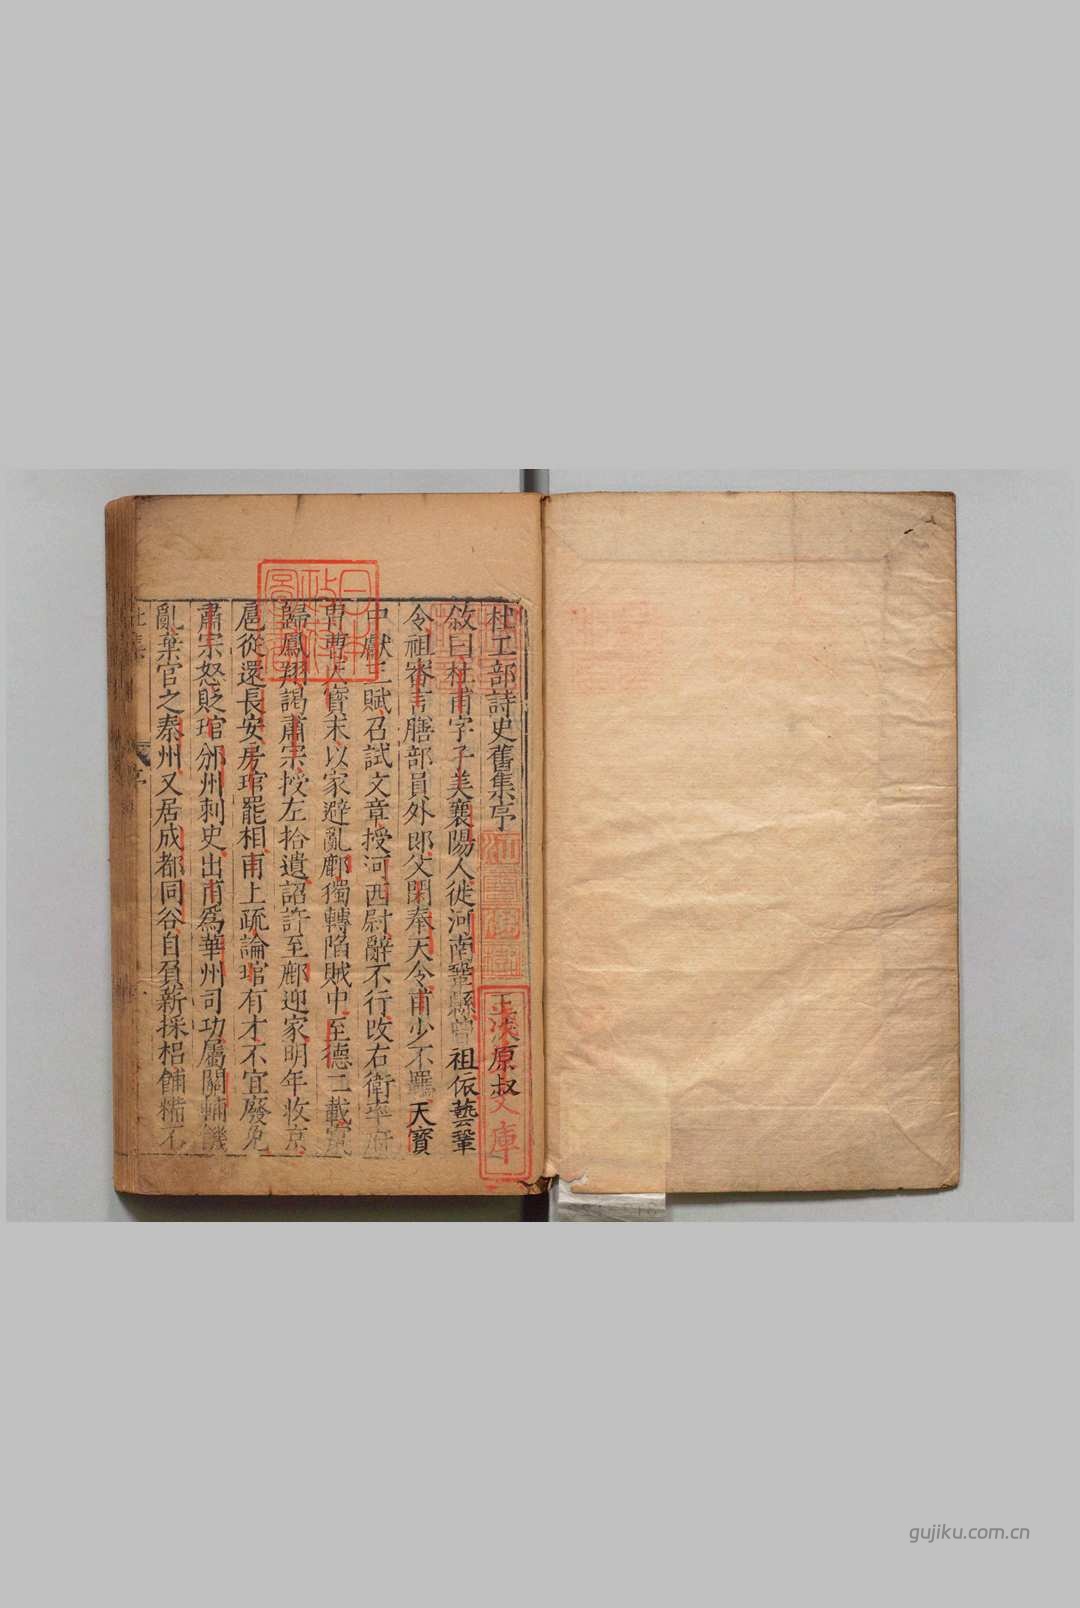 杜工部詩史舊集序
王洙原叔
敘曰杜甫字子美襄陽人徙河南鞏縣曾祖依藝鞏
令祖審言膳部員外郎父閑奉天令甫少不羈天寶
中獻三賦召試文章授河西尉辭不行改右衛率府
冑曹天寶末以家避亂鄜獨轉陷賊中至德二載竄
歸鳳翔謁肅宗授左拾遺詔許至鄜迎家明年收京
扈從還長安房琯罷相甫上疏論琯有才不宜廢免
肅宗怒貶琯邠州刺史出甫為華州司功屬關輔饑
亂棄官之秦州又居成都同谷自負薪採梠餔糒不
日本政府圖書
文庫
gujiku.com.cn